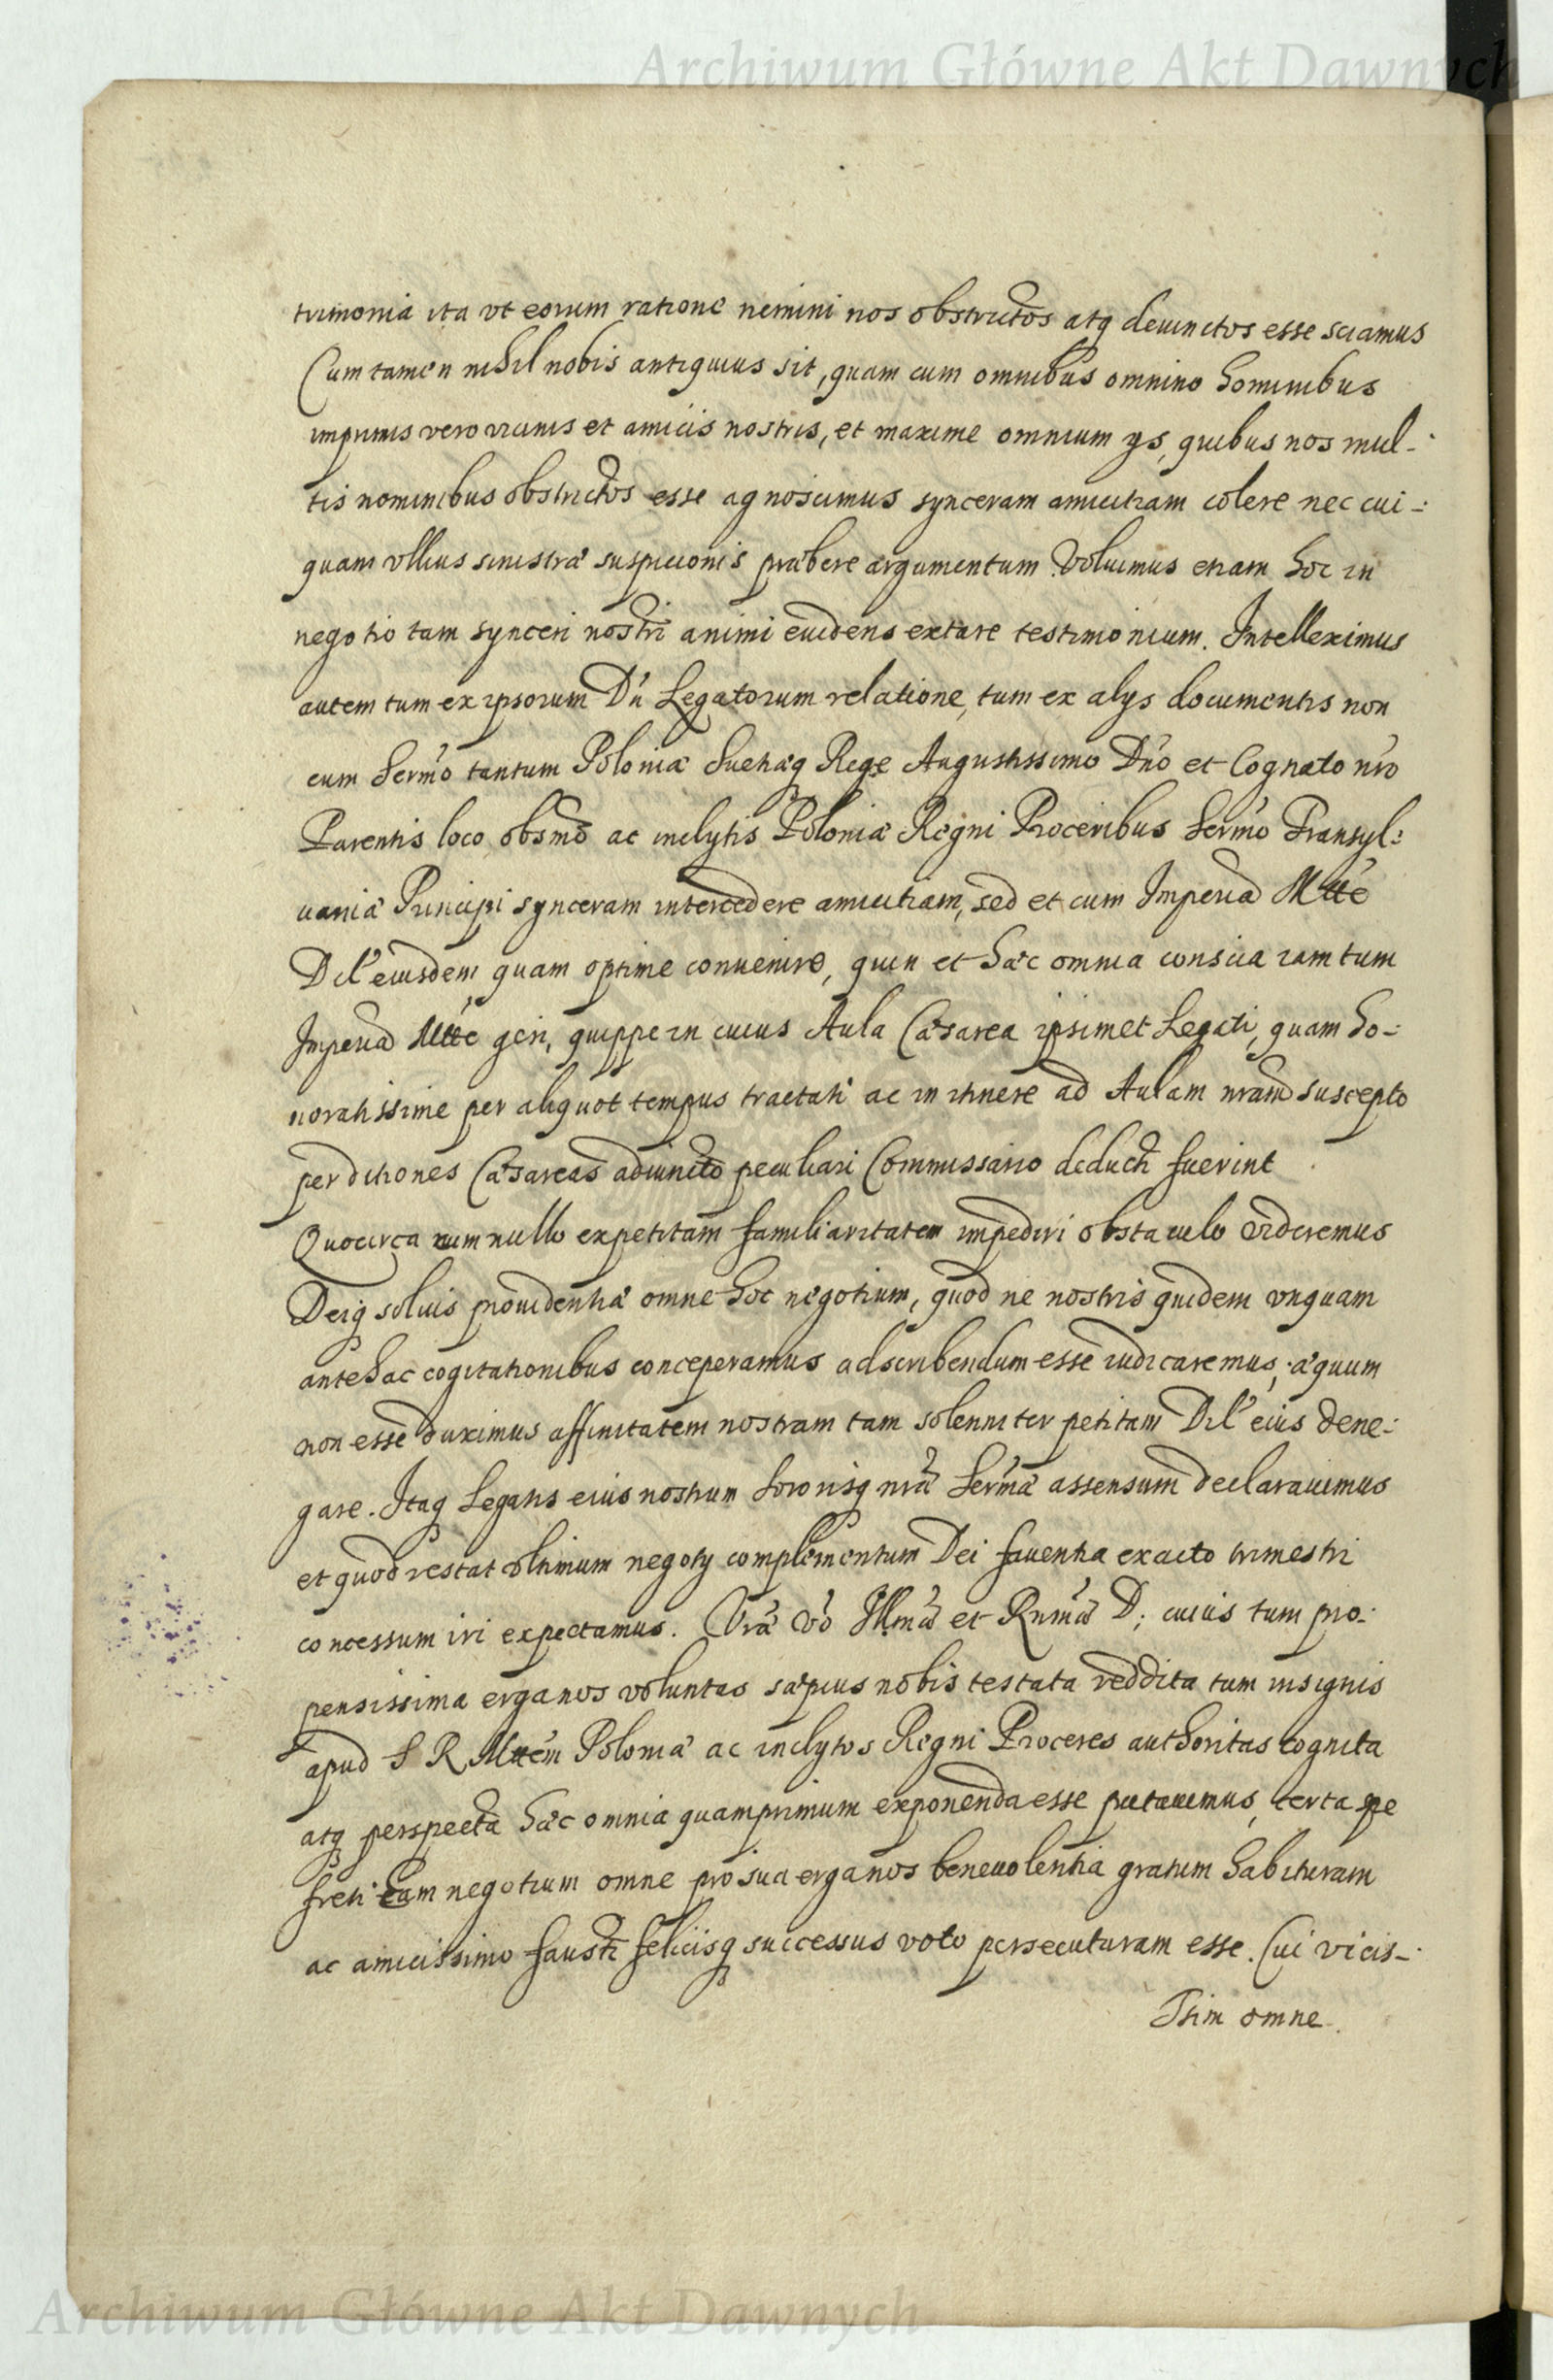 Archiwum Główne Akt Dawnych
trimonia ita vt eorum ratione nemini nos obstrictos atq deuinctos esse sciamus
Cum tamen nihil nobis antiquius sit, quam cum omnibus omnino hominibus
imprimis vero vicinis et amicis nostris, et maxime omnium ijs, quibus nos mul-
tis nominibus obstrictos esse agnoscimus synceram amicitiam colere nec cui-
quam vllius sinistræ suspicionis præbere argumentum. Voluimus etiam hoc in
negotio tam synceri nostri animi euidens extare testimonium. Intelleximus
autem tum ex ipsorum Dn Legatorum relatione, tum ex alijs documentis non
cum Sermo tantum Poloniæ Sueciæq Rege Augustissimo Dno et Cognato nro
Parentis loco obsmo ac inclytis Poloniæ Regni Proceribus Sermo Transyl:
uaniæ Principi synceram intercedere amicitiam, sed et cum Imperia Mtte
Dil eiusdem quam optime conuenire, quin et hæc omnia conscia iam tum
Imperia Mtte geri, quippe in cuius Aula Cæsarea ipsimet Legati, quam ho-
noratissime per aliquot tempus tractati ac in itinere ad Aulam nram suscepto
per ditiones Cæsareas adiuncto peculiari Commissario deducti fuerint
Quocirca cum nullo expetitam familiaritatem impediri obstaculo videremus
Deiq soluis prouidentiæ omne hoc negotium, quod ne nostris quidem vnquam
antehac cogitationibus conceperamus adscribendum esse iudicaremus, æquum
non esse duximus affinitatem nostram tam solenniter petitam Dil eius dene:
gare. Itaq Legatis eius nostrum Sororisq nræ Sermæ assensum declarauimus
et quod restat vltimum negotij complementum Dei fauentia exacto trimestri
concessum iri expectamus. Vræ vo Illmæ et Rnmæ D; cuius tum pro-
pensissima erga nos voluntas sæpius nobis testata reddita tum insignis
apud S R Mttem Poloniæ ac inclytos Regni Proceres authoritas cognita
atq perspecta hæc omnia quamprimum exponenda esse putauimus, certa spe
freti Eam negotium omne pro sua erga nos beneuolentia gratum habituram
ac amicissimo fausti felicisq successus voto persecuturam esse. Cui vicis-
sim omne
Archiwum Główne Akt Dawnych